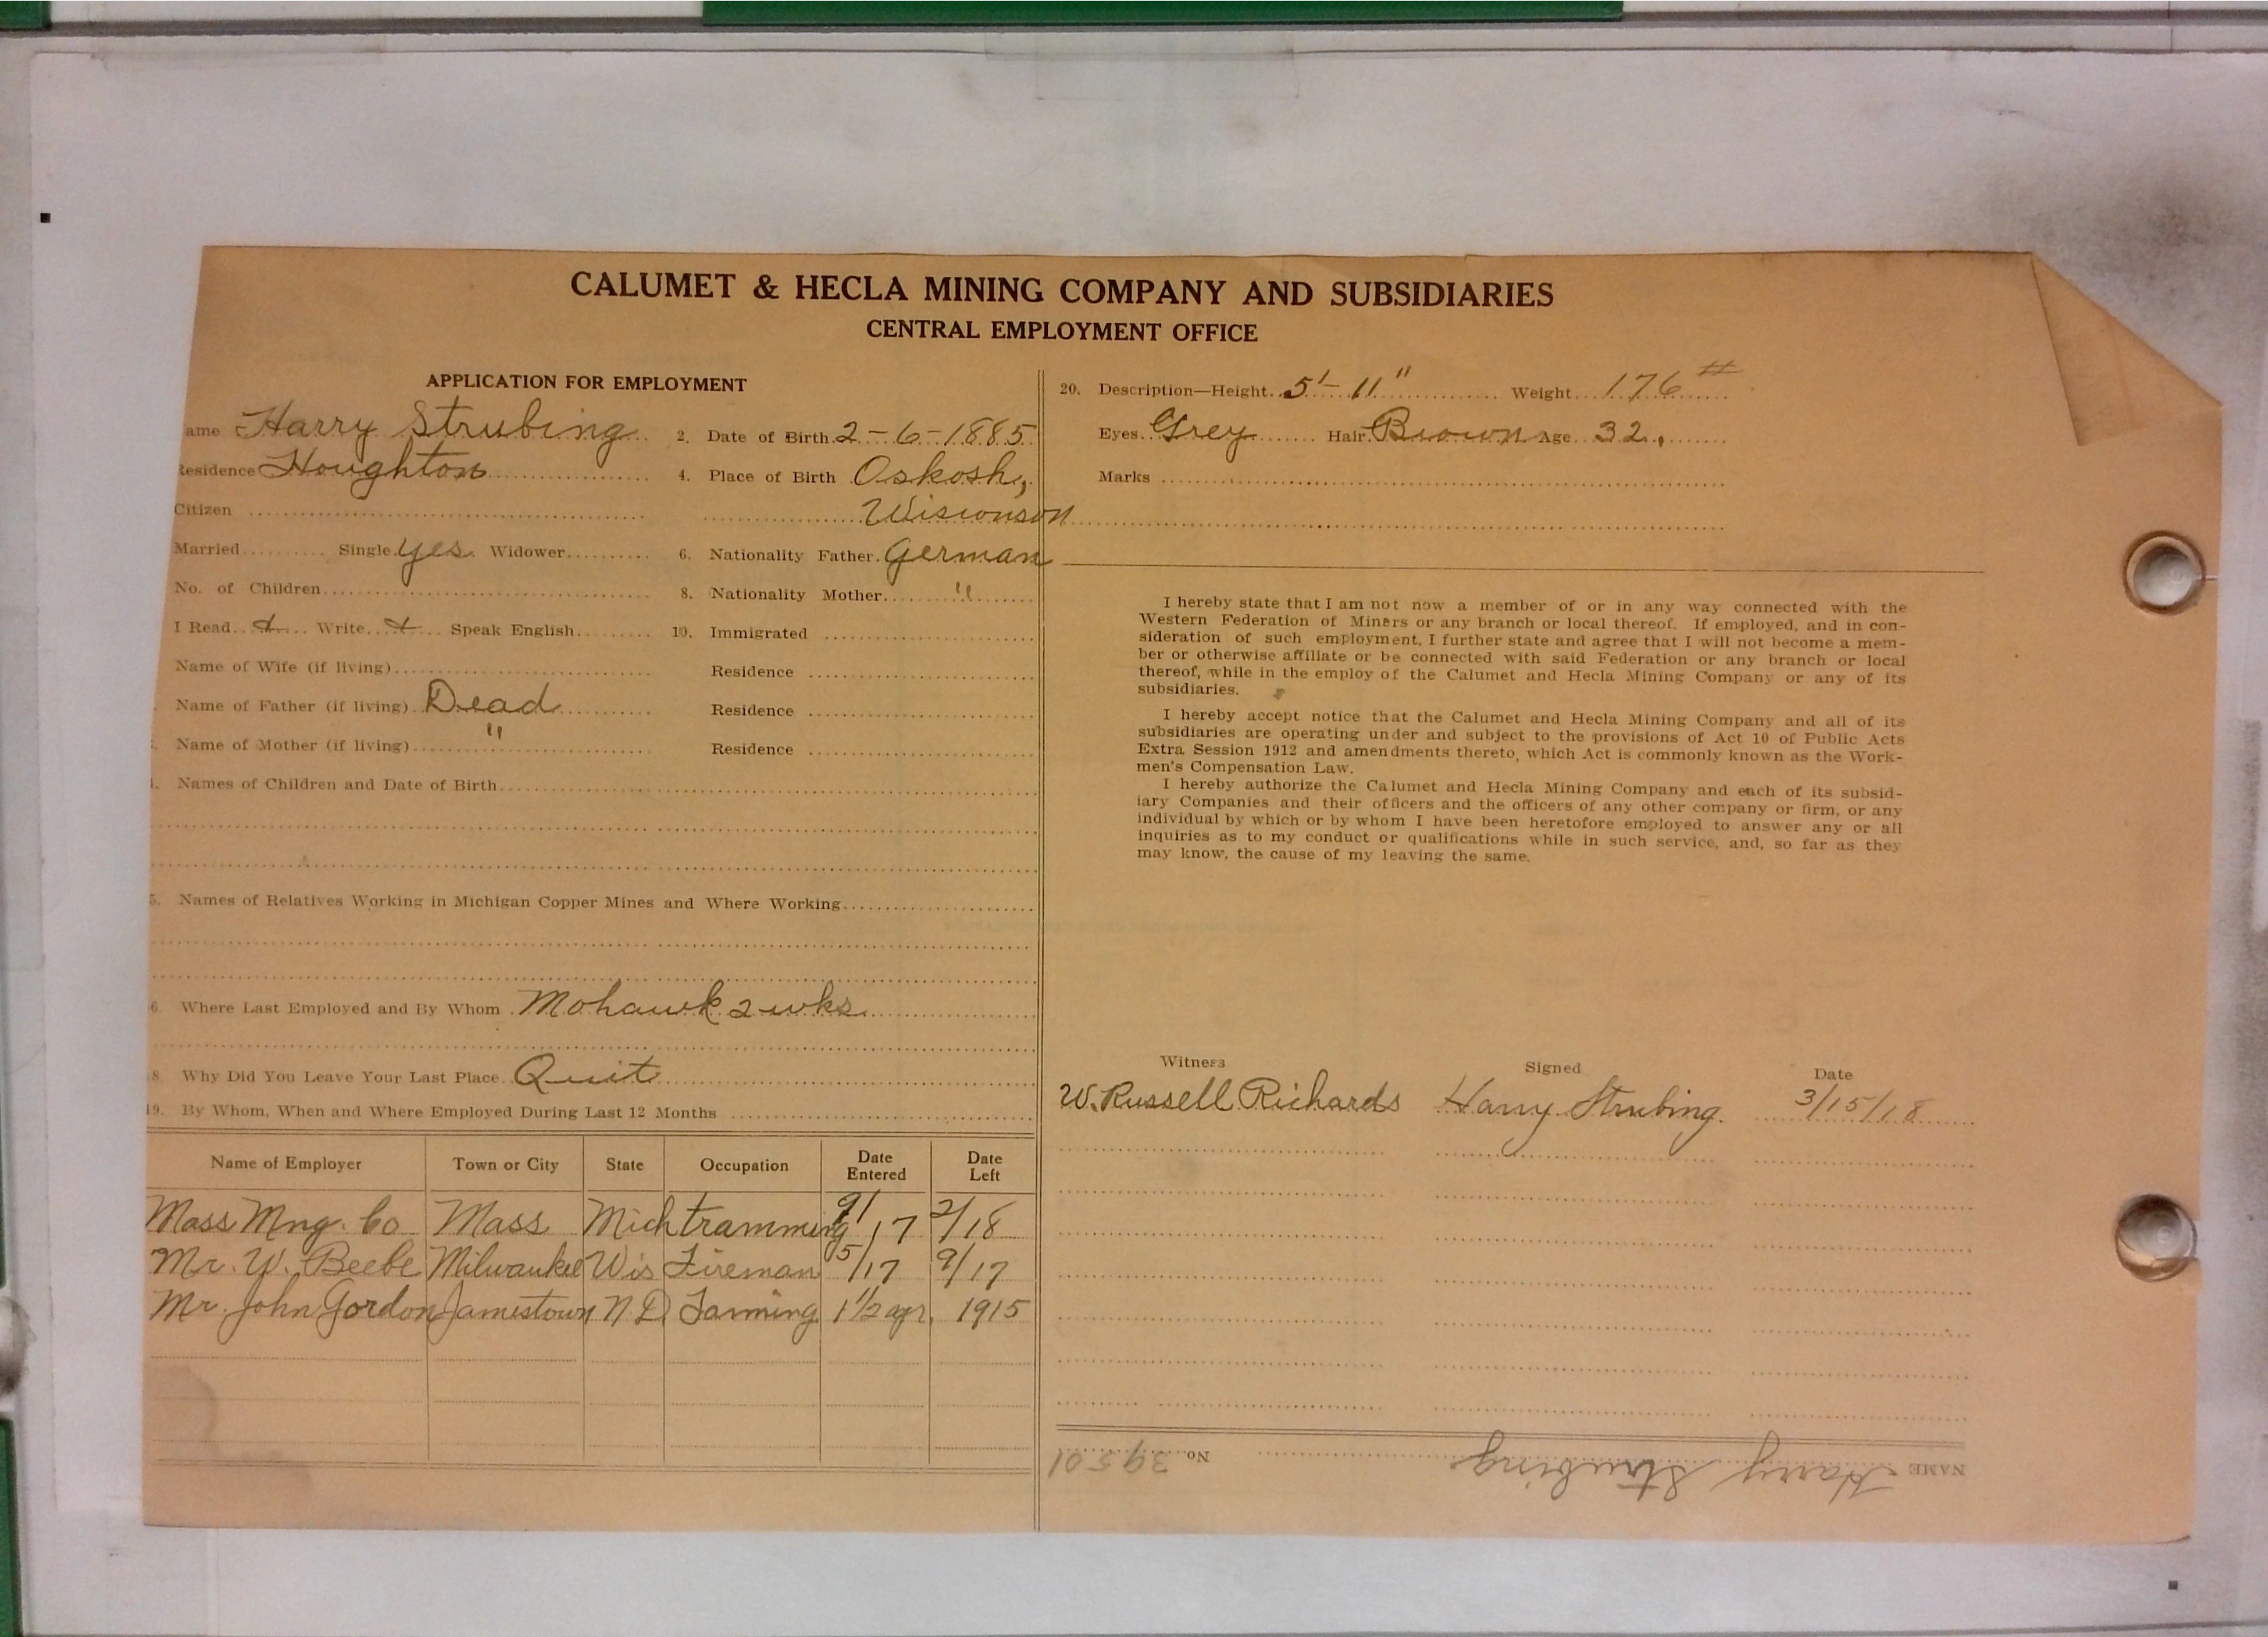 CALUMET & HECLA MINING COMPANY AND SUBSIDIARIES
CENTRAL EMPLOYMENT OFFICE
APPLICATION FOR EMPLOYMENT
ame Harry Strubing 2. Date of Birth 2-6-1885
Residence Houghton 4. Place of Birth Oskosh,
Citizen Wisconson
Married Single yes Widower 6. Nationality Father German
No. of Children 8. Nationality Mother "
I Read Write Speak English 10. Immigrated
Name of Wife (if living) Residence
Name of Father (if living) Dead Residence
Name of Mother (if living) " Residence
Names of Children and Date of Birth
5. Names of Relatives Working in Michigan Copper Mines and Where Working
6. Where Last Employed and By Whom Mohawk 2 wks
8. Why Did You Leave Your Last Place Quit
19. By Whom, When and Where Employed During Last 12 Months
Name of Employer Town or City State Occupation Date Entered Date Left
Mass Mng. Co Mass Mich tramming 9/17 2/18
Mr. W. Beebe Milwaukee Wis Fireman 5/17 9/17
Mr. John Gordon Jamestown N.D Farming 1 1/2 1915
20. Description—Height 5'-11" Weight 176#
Eyes Grey Hair Brown Age 32
Marks
I hereby state that I am not now a member of or in any way connected with the
Western Federation of Miners or any branch or local thereof. If employed, and in con-
sideration of such employment, I further state and agree that I will not become a mem-
ber or otherwise affiliate or be connected with said Federation or any branch or local
thereof, while in the employ of the Calumet and Hecla Mining Company or any of its
subsidiaries.
I hereby accept notice that the Calumet and Hecla Mining Company and all of its
subsidiaries are operating under and subject to the provisions of Act 10 of Public Acts
Extra Session 1912 and amendments thereto, which Act is commonly known as the Work-
men's Compensation Law.
I hereby authorize the Calumet and Hecla Mining Company and each of its subsid-
iary Companies and their officers and the officers of any other company or firm, or any
individual by which or by whom I have been heretofore employed to answer any or all
inquiries as to my conduct or qualifications while in such service, and, so far as they
may know, the cause of my leaving the same.
Witness Signed Date
W. Russell Richards Harry Strubing. 3/15/18
NAME Harry Strubing No. 39501